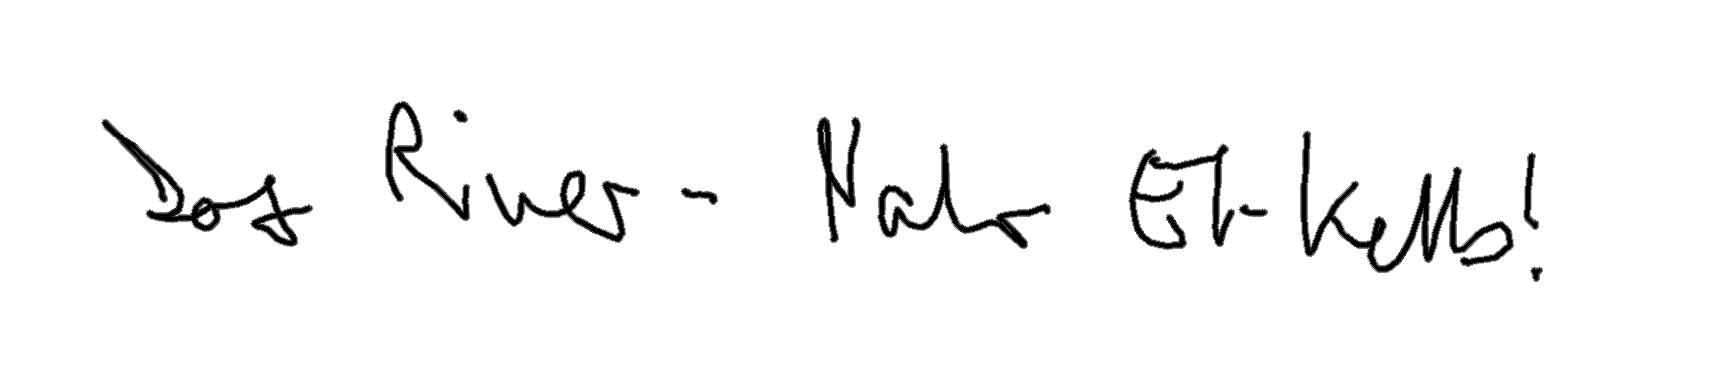 Das River - Nahr El-Kelb!